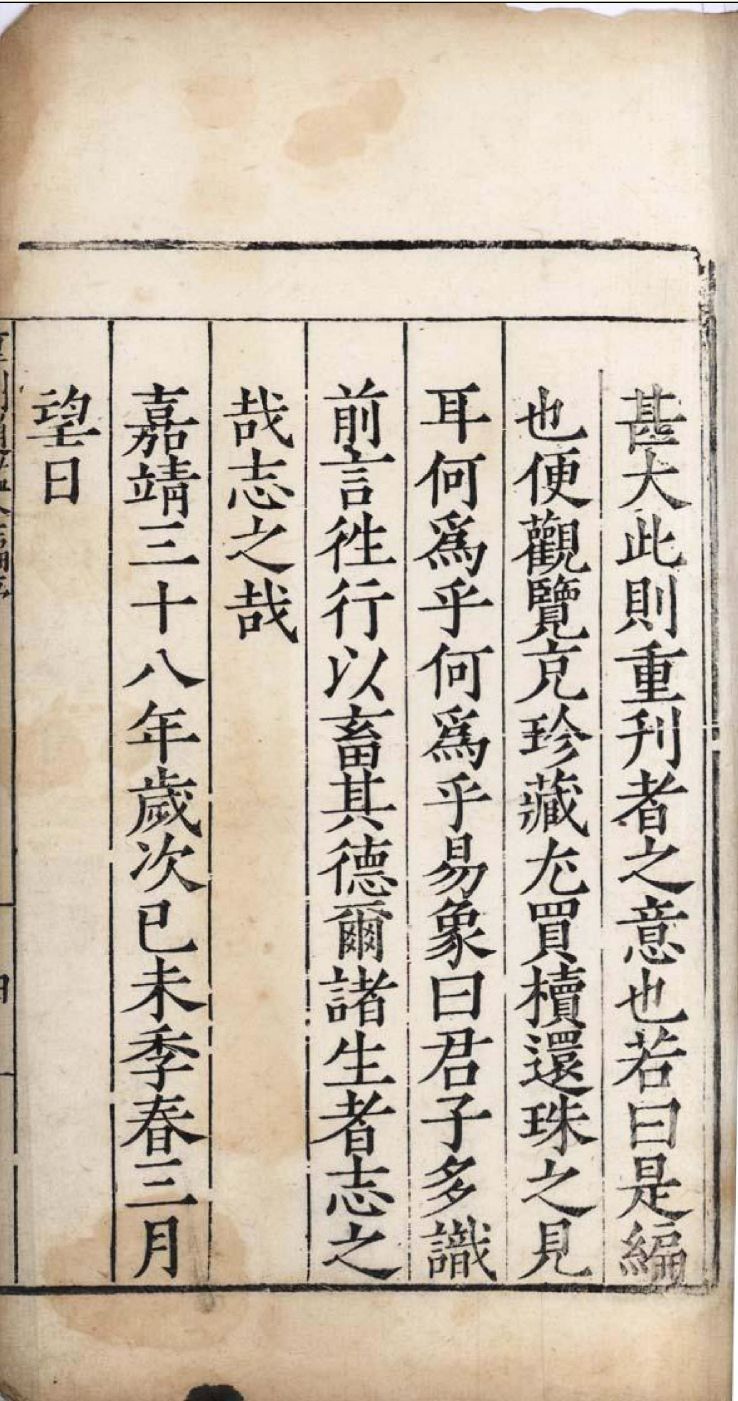 甚大此則重刋者之意也若曰是編
也便觀覽充珍藏尤買櫝還珠之見
耳何爲乎何爲乎易象曰君子多識
前言徃行以畜其德爾諸生者志之
哉志之哉
嘉靖三十八年歲次已未季春三月
望日